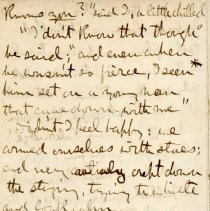 Knows you?" said I, a little chilled
"I don't know that though"
he said; "and even when
he wasn't so fierce, I seen
him set on a young man
that came down with me"
I didn't feel happy: we
armed ourselves with
and very crept down
the , trying to
and look calm